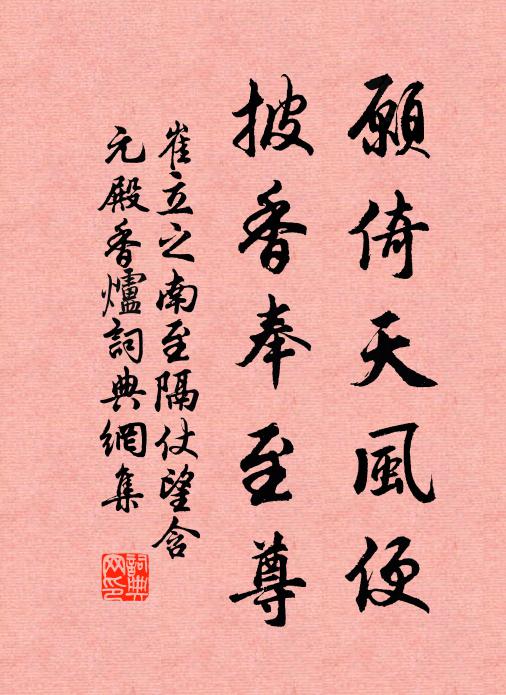 願倚天風便
披香奉至尊
崔立之南至隔仗望含
元殿香爐詞典網集
詞典網印